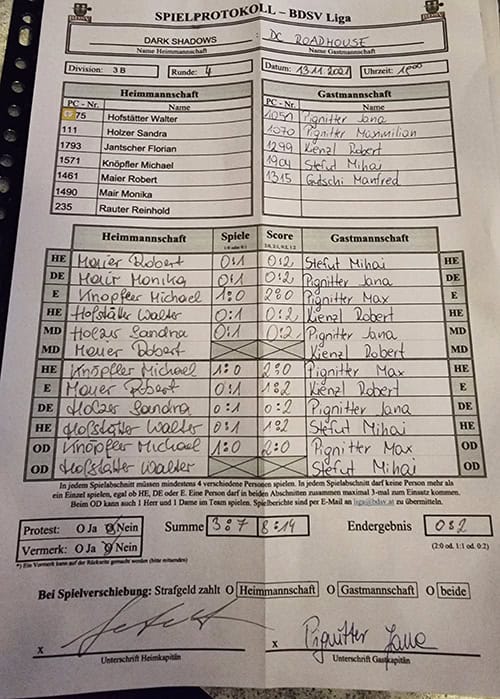 SPIELPROTOKOLL – BDSV Liga
DARK SHADOWS DC ROADHOUSE
Name Heimmannschaft Name Gastmannschaft
Division: 3 B Runde: 4 Datum: 13.11.2021 Uhrzeit:
Heimmannschaft Gastmannschaft
PC - Nr. Name PC - Nr. Name
75 Hofstätter Walter 1050 Pignitter Jana
111 Holzer Sandra 1070 Pignitter Maxmilian
1793 Jantscher Florian 1299 Kienzl Robert
1571 Knöpfler Michael 1904 Stefut Mihai
1461 Maier Robert 1315 Manfred
1490 Mair Monika
235 Rauter Reinhold
Heimmannschaft Spiele Score Gastmannschaft
1:0 oder 0:1 2:0, 2:1, 0:2, 1:2
HE Maier Robert 0:1 0:2 Stefut Mihai HE
DE Mair Monika 0:1 0:2 Pignitter Jana DE
E Knöpfler Michael 1:0 2:0 Pignitter Max E
HE Hofstätter Walter 0:1 0:2 Kienzl Robert HE
MD Holzer Sandra 0:1 0:2 Pignitter Jana MD
MD Maier Robert Kienzl Robert MD
HE Knöpfler Michael 1:0 2:0 Pignitter Max HE
E Maier Robert 0:1 1:2 Kienzl Robert E
DE Holzer Sandra 0:1 0:2 Pignitter Jana DE
HE Hofstätter Walter 0:1 1:2 Stefut Mihai HE
OD Knöpfler Michael 1:0 2:0 Pignitter Max OD
OD Hofstätter Walter Stefut Mihai OD
In jedem Spielabschnitt müssen mindestens 4 verschiedene Personen spielen. In jedem Spielabschnitt darf keine Person mehr als
ein Einzel spielen, egal ob HE, DE oder E. Eine Person darf in beiden Abschnitten zusammen maximal 3-mal zum Einsatz kommen.
Beim OD kann auch 1 Herr und 1 Dame im Team spielen. Spielberichte sind per E-Mail an liga@bdsv.at zu übermitteln.
Protest: O Ja O Nein Summe 3:7 8:14 Endergebnis 0:2
Vermerk: O Ja O Nein (2:0 od. 1:1 od. 0:2)
*) Ein Vermerk kann auf der Rückseite gemacht werden (bitte mitsenden)
Bei Spielverschiebung: Strafgeld zahlt O Heimmannschaft O Gastmannschaft O beide
x x Pignitter Jana
Unterschrift Heimkapitän Unterschrift Gastkapitän